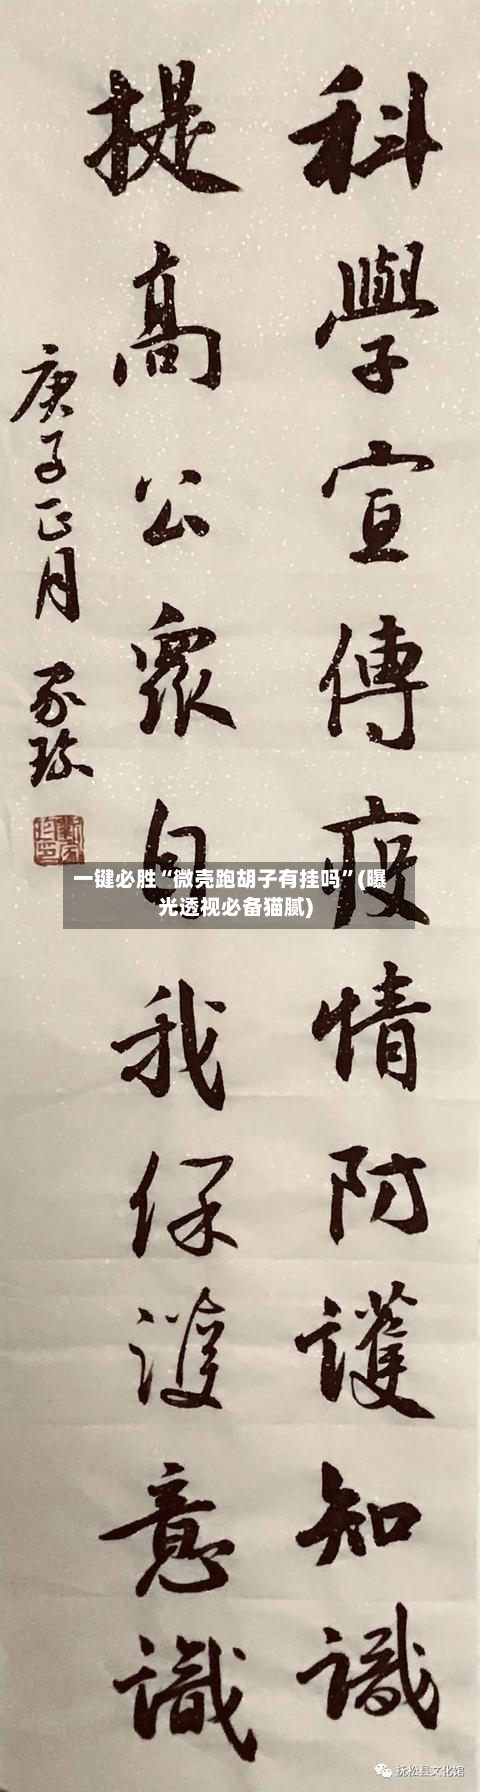 科學宣傳疫情防護知識
提高公眾自我保護意識
庚子正月 家珍
一键必胜“微壳跑胡子有挂吗”(曝
光透视必备猫腻)
抚松县文化馆